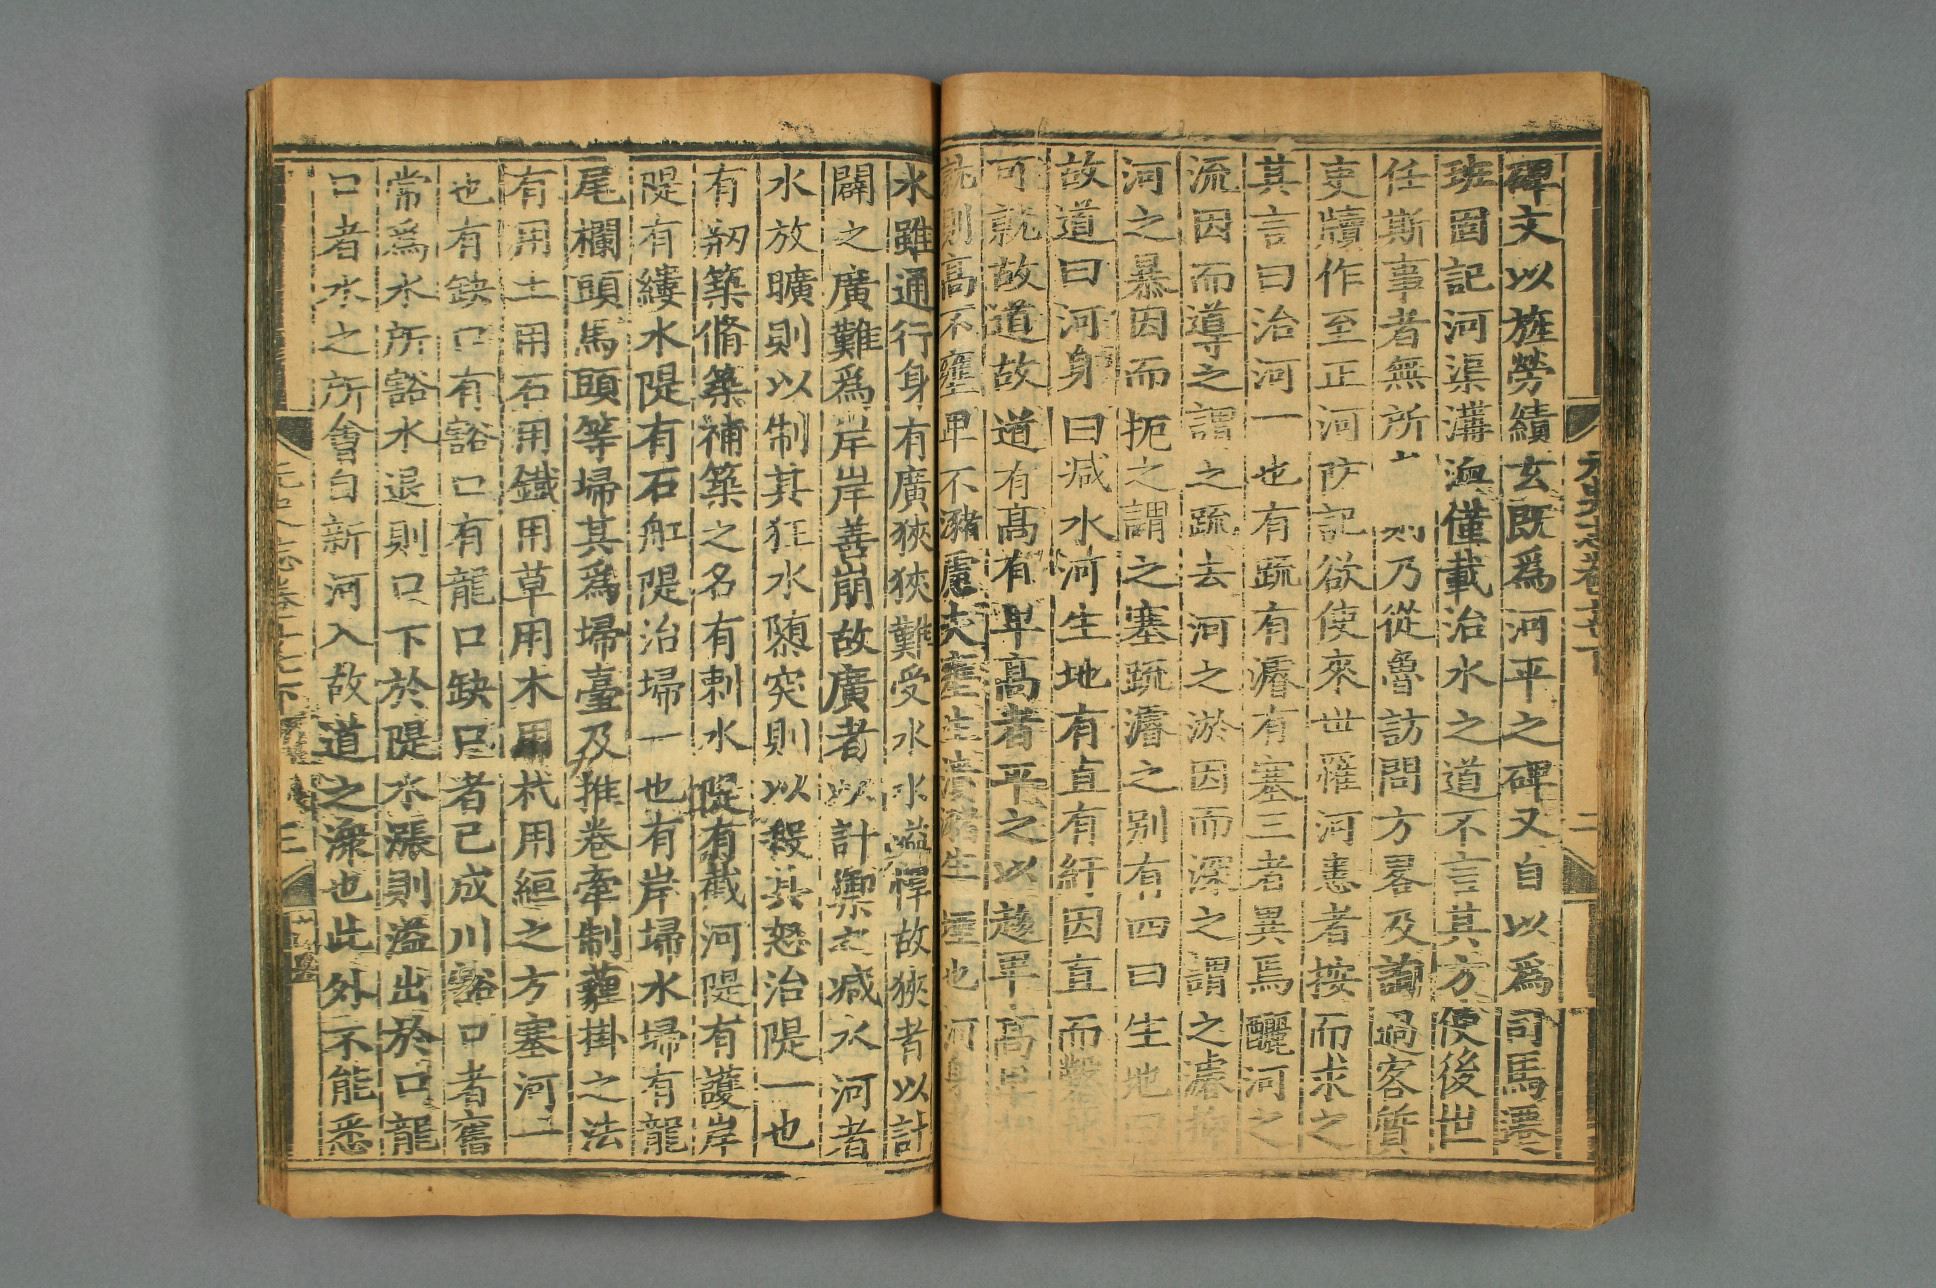 碑文以旌勞績玄既爲河平之碑又自以爲司馬遷
班固記河渠溝洫僅載治水之道不言其方使後世
任斯事者無所乃從魯訪問方畧及詢過客質
吏牘作至正河防記欲使來世罹河患者按而求之
其言曰治河一也有疏有濬有塞三者異焉釃河之
流因而導之謂之疏去河之淤因而深之謂之濬抑
河之暴因而扼之謂之塞疏濬之別有四曰生地曰
故道曰河身曰减水河生地有直有紆因直而鑿之
可就故道故道有高有卑高者平之以趍卑高卑相
就則高不壅卑不瀦慮夫壅生潰瀦生堙也河身者
水雖通行身有廣狹狹難受水水溢悍故狹者以計
闢之廣難爲岸岸善崩故廣者以計禦之减水河者
水放曠則以制其狂水隳突則以殺其怒治隄一也
有剏築脩築補築之名有刺水隄有截河隄有護岸
隄有縷水隄有石舡隄治埽一也有岸埽水埽有龍
尾欄頭馬頭等埽其爲埽臺及推卷牽制薶掛之法
有用土用石用鐵用草用木用杙用絙之方塞河一
也有缺口有豁口有龍口缺口者已成川豁口者舊
常爲水所豁水退則口下於隄水漲則溢出於口龍
口者水之所會自新河入故道之潨也此外不能悉
元史志卷十七下 三